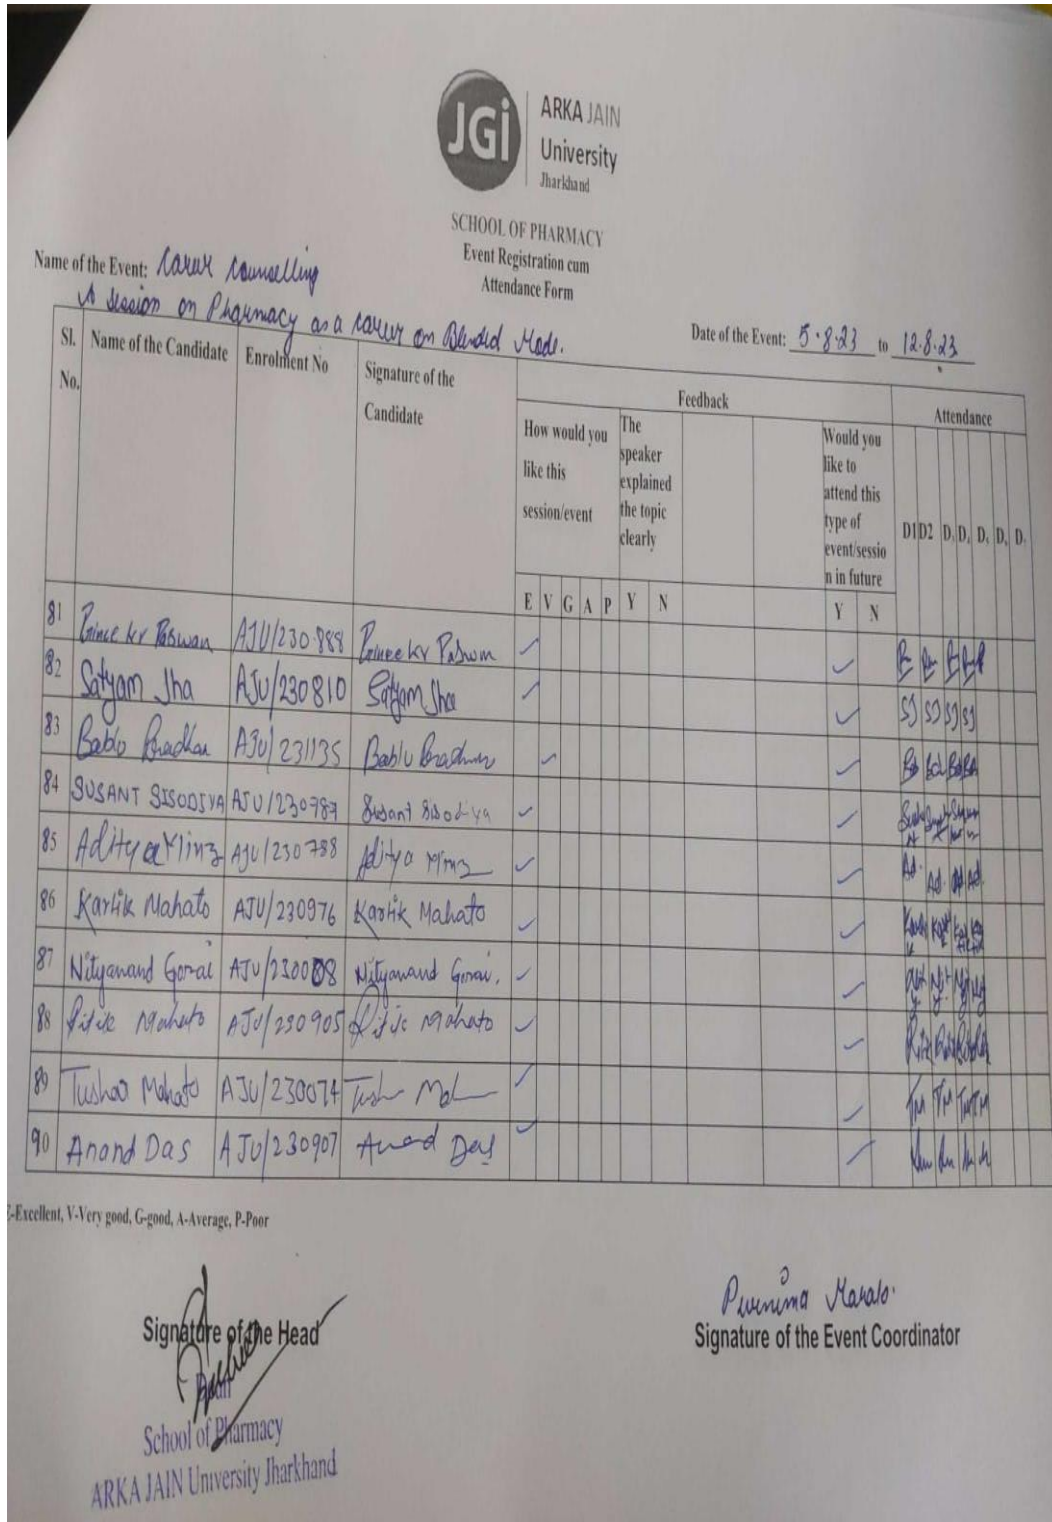 JGi
ARKA JAIN
University
Jharkhand
SCHOOL OF PHARMACY
Event Registration cum
Attendance Form
Name of the Event: Career Counselling
A Session on Pharmacy as a career on Blended Mode.
Date of the Event: 5.8.23 to 12.8.23
Sl. No. Name of the Candidate Enrolment No Signature of the Candidate Feedback Attendance
How would you like this session/event
The speaker explained the topic clearly
Would you like to attend this type of event/session in future
D1 D2 D. D. D. D. D.
E V G A P Y N Y N
81 Prince kr Paswan AJU/230888 Prince kr Paswan
82 Satyam Jha AJU/230810 Satyam Jha SJ SJ SJ SJ
83 Bablo Pradhan AJU/231135 Bablu Pradhan
84 SUSANT SISODIYA AJU/230787 Susant Sisodiya
85 Aditya Minz AJU/230788 Aditya Minz Ad. Ad. Ad Ad.
86 Kartik Mahato AJU/230976 Kartik Mahato
87 Nityanand Gorai AJU/230008 Nityanand Gorai.
88 Ritik Mahato AJU/230905 Ritik Mahato
89 Tushar Mahato AJU/230074 TM TM TM TM
90 Anand Das AJU/230907 Anand Das
E-Excellent, V-Very good, G-good, A-Average, P-Poor
Signature of the Head
Dean
School of Pharmacy
ARKA JAIN University Jharkhand
Purnima
Signature of the Event Coordinator